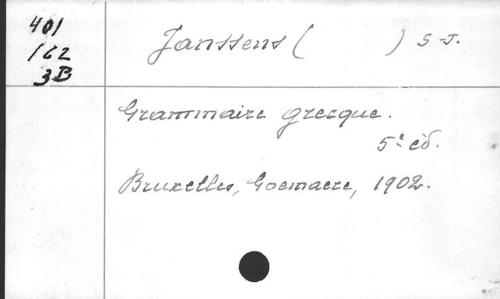 401
162
3B
Janssens ( ) S J.
Grammaire grecque.
5e éd.
Bruxelles, Goemaere, 1902.